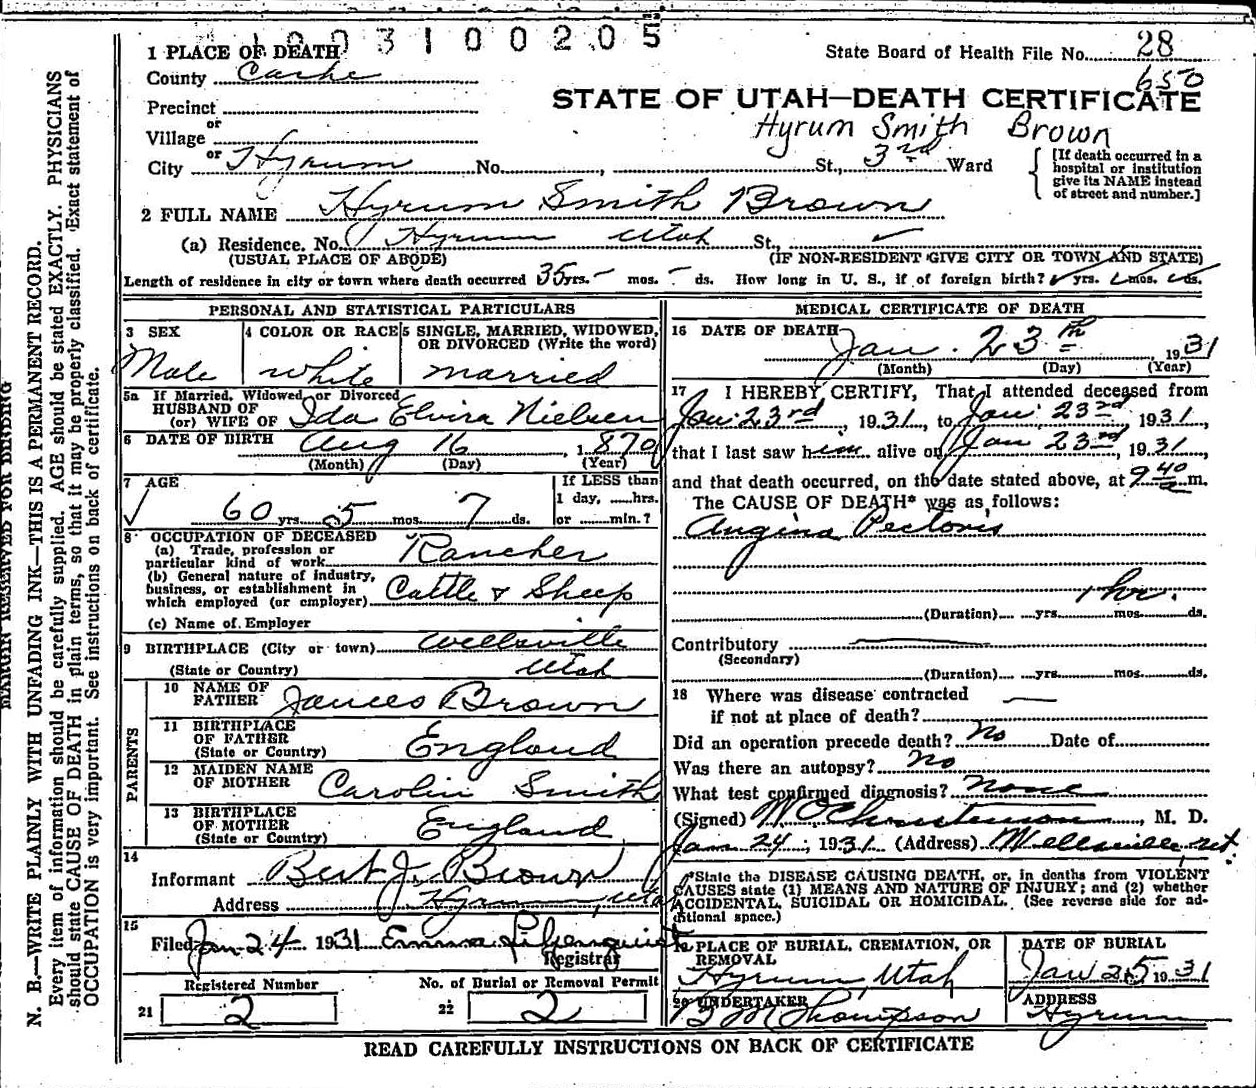 1003100205
1 PLACE OF DEATH
State Board of Health File No. 28
County Cache
650
Precinct
STATE OF UTAH—DEATH CERTIFICATE
or
Hyrum Smith Brown
Village
or
City Hyrum No. , St., 3rd Ward
[If death occurred in a hospital or institution give its NAME instead of street and number.]
2 FULL NAME Hyrum Smith Brown
(a) Residence. No. Hyrum Utah St.,
(USUAL PLACE OF ABODE) (IF NON-RESIDENT GIVE CITY OR TOWN AND STATE)
Length of residence in city or town where death occurred 35 yrs. - mos. - ds. How long in U. S., if of foreign birth? yrs. mos. ds.
PERSONAL AND STATISTICAL PARTICULARS
3 SEX
Male
4 COLOR OR RACE
white
5 SINGLE, MARRIED, WIDOWED,
OR DIVORCED (Write the word)
married
5a If Married, Widowed, or Divorced
HUSBAND OF
(or) WIFE OF Ida Elvira Nielsen
6 DATE OF BIRTH Aug 16, 1870
(Month) (Day) (Year)
7 AGE
60 yrs. 5 mos. 7 ds.
If LESS than
1 day, ......hrs.
or ......min.?
8 OCCUPATION OF DECEASED
(a) Trade, profession or
particular kind of work Rancher
(b) General nature of industry,
business, or establishment in
which employed (or employer) Cattle & Sheep
(c) Name of Employer
9 BIRTHPLACE (City or town) Wellsville
(State or Country) Utah
PARENTS
10 NAME OF
FATHER James Brown
11 BIRTHPLACE
OF FATHER
(State or Country) England
12 MAIDEN NAME
OF MOTHER Carolin Smith
13 BIRTHPLACE
OF MOTHER
(State or Country) England
14
Informant Bert J. Brown
Address Hyrum, Utah
15
Filed Jan 24 1931 Emma
Registrar
Registered Number
21 2
No. of Burial or Removal Permit
22 2
MEDICAL CERTIFICATE OF DEATH
16 DATE OF DEATH
Jan. 23th, 1931
(Month) (Day) (Year)
17 I HEREBY CERTIFY, That I attended deceased from
Jan. 23rd, 1931, to Jan. 23rd 1931,
that I last saw him alive on Jan 23rd, 1931,
and that death occurred, on the date stated above, at 9 40 a. m.
The CAUSE OF DEATH* was as follows:
Angina Pectoris
1 hr.
(Duration) yrs. mos. ds.
Contributory
(Secondary)
(Duration) yrs. mos. ds.
18 Where was disease contracted
if not at place of death?
Did an operation precede death? No Date of
Was there an autopsy? No
What test confirmed diagnosis? none
(Signed) W O Christenson, M. D.
Jan 24, 1931 (Address) Wellsville, Ut.
*State the DISEASE CAUSING DEATH, or, in deaths from VIOLENT
CAUSES state (1) MEANS AND NATURE OF INJURY; and (2) whether
ACCIDENTAL, SUICIDAL OR HOMICIDAL. (See reverse side for ad-
ditional space.)
19 PLACE OF BURIAL, CREMATION, OR
REMOVAL
Hyrum, Utah
DATE OF BURIAL
Jan 25, 1931
20 UNDERTAKER
B M Thompson
ADDRESS
Hyrum
READ CAREFULLY INSTRUCTIONS ON BACK OF CERTIFICATE
MARGIN RESERVED FOR BINDING
N. B.—WRITE PLAINLY WITH UNFADING INK—THIS IS A PERMANENT RECORD.
Every item of information should be carefully supplied. AGE should be stated EXACTLY. PHYSICIANS
should state CAUSE OF DEATH in plain terms, so that it may be properly classified. Exact statement of
OCCUPATION is very important. See instructions on back of certificate.